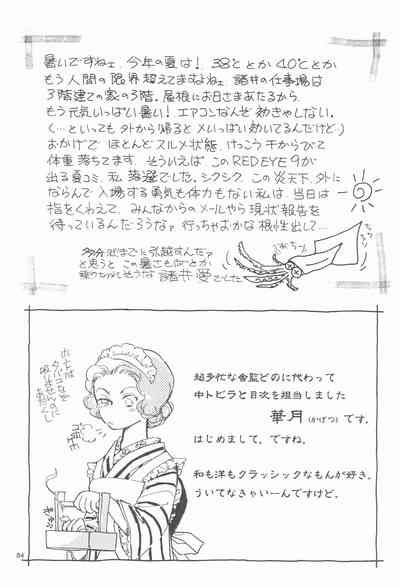 暑いですねェ、今年の夏は！ 38℃とか40℃とか
もう人間の限界超えてますよねェ、諸井の仕事場は
3階建ての家の3階。屋根にお日さまあたるから
もう元気いっぱい暑い！エアコンなんぞ効きゃしない。
(…といっても外から帰ると いっぱい効いてるんだけど♪)
おかげで ほとんどスルメ状態、けっこう干からびて
体重落ちてます。そういえば この RED EYE 9が
出る夏コミ、私 落選でした。シクシク。この炎天下、外に
ならんで入場する勇気も体力もない私は、当日は
指をくわえて、みんなからのメールやら現状報告を
待っているんだろうなァ 行っちゃおかな 根性出して…
と思うと この暑さも
諸井 愛でした
超多忙な舎監どのに代わって
中トビラと目次を担当しました
華月(かげつ)です。
はじめまして。ですね。
和も洋もクラッシックなもんが好き。
ういてなきゃいーんですけど。
84